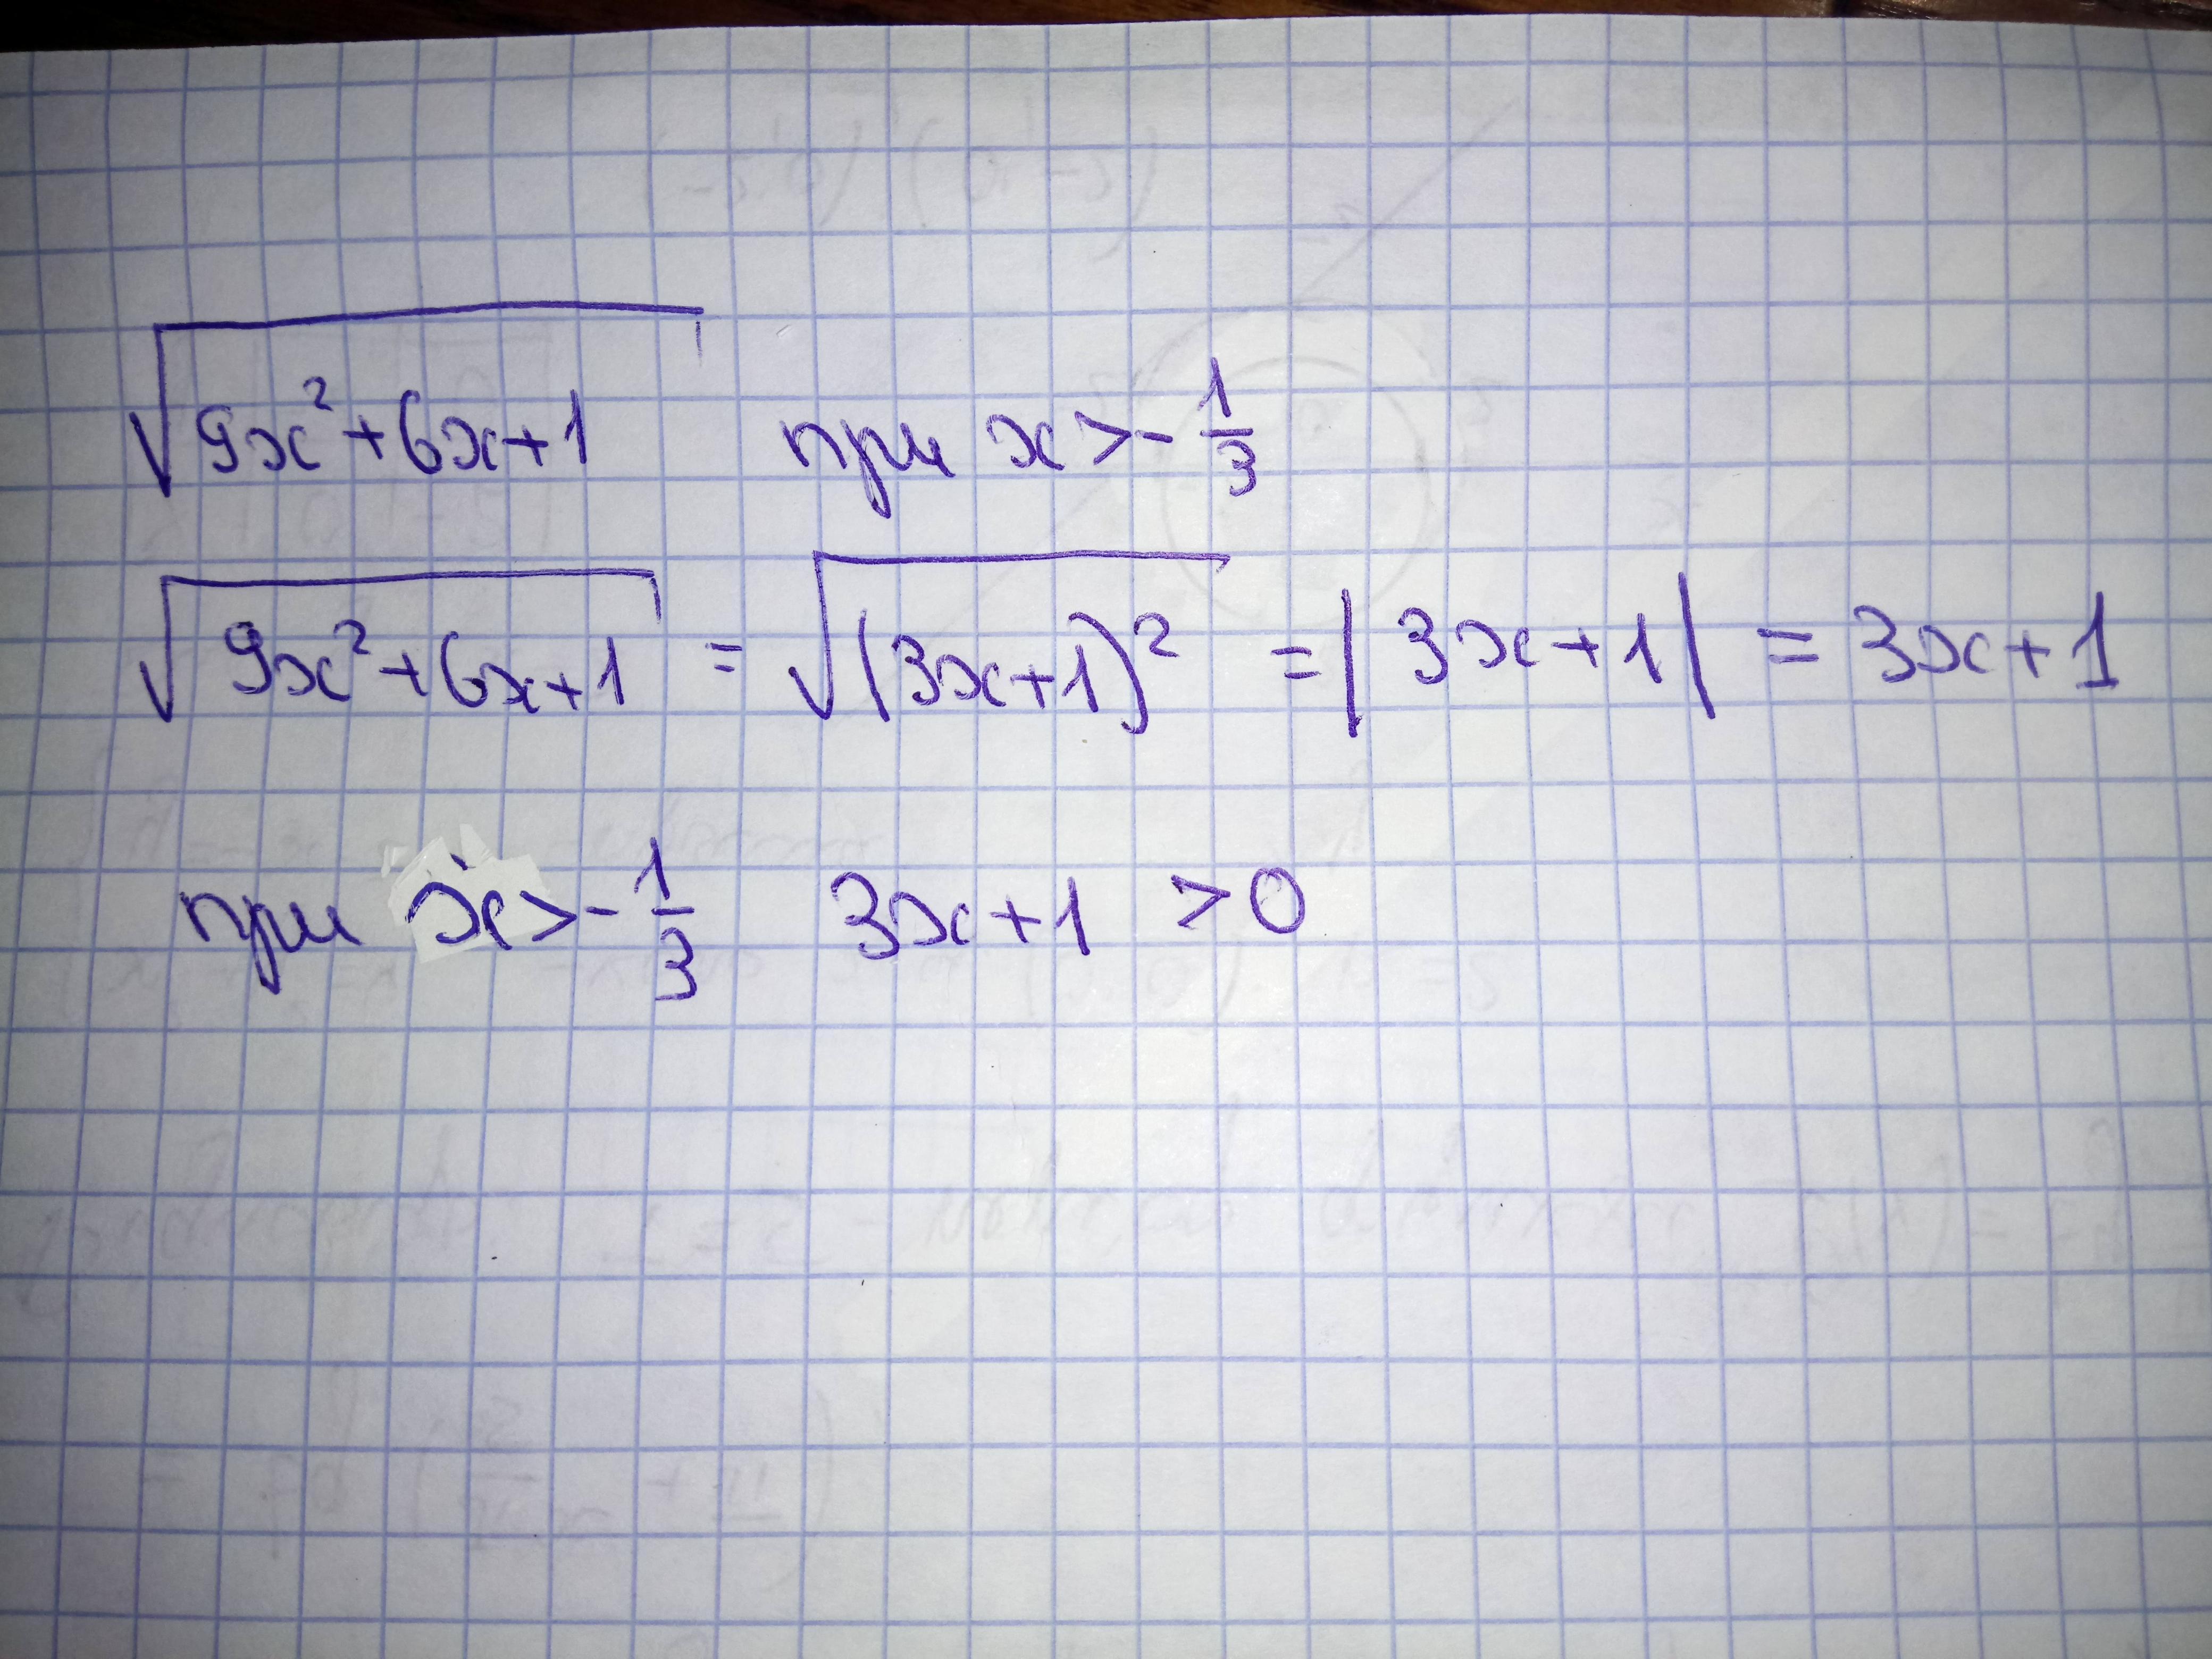 √9x²+6x+1 при x>-1/3
√9x²+6x+1 = √(3x+1)² = |3x+1| = 3x+1
при x>-1/3 3x+1 >0